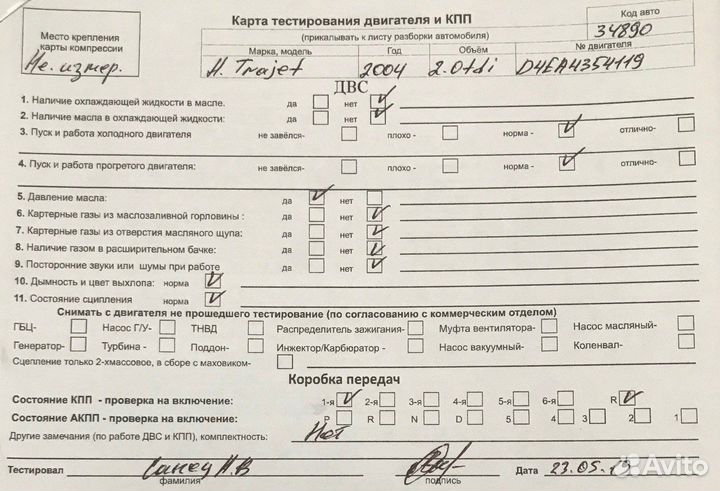 Карта тестирования двигателя и КПП
(прикалывать к листу разборки автомобиля)
Код авто
34890
Место крепления
карты компрессии
Не. измер.
Марка, модель Год Объём № двигателя
H. Trajet 2004 2.0tdi D4EA4354119
ДВС
1. Наличие охлаждающей жидкости в масле. да нет
2. Наличие масла в охлаждающей жидкости: да нет
3. Пуск и работа холодного двигателя не завёлся- плохо - норма - отлично-
4. Пуск и работа прогретого двигателя: не завёлся- плохо - норма - отлично-
5. Давление масла: да нет
6. Картерные газы из маслозаливной горловины : да нет
7. Картерные газы из отверстия масляного щупа: да нет
8. Наличие газом в расширительном бачке: да нет
9. Посторонние звуки или шумы при работе да нет
10. Дымность и цвет выхлопа: норма
11. Состояние сципления норма
Снимать с двигателя не прошедшего тестирование (по согласованию с коммерческим отделом)
ГБЦ- Насос Г/У- ТНВД Распределитель зажигания- Муфта вентилятора- Насос масляный-
Генератор- Турбина - Поддон- Инжектор/Карбюратор - Насос вакуумный- Коленвал-
Сцепление только 2-хмассовое, в сборе с маховиком-
Коробка передач
Состояние КПП - проверка на включение: 1-я 2-я 3-я 4-я 5-я 6-я R
Состояние АКПП - проверка на включение: P R N D 5 4 3 2 1
Другие замечания (по работе ДВС и КПП), комплектность: Нет
Тестировал Дата 23.05.
фамилия подпись
Avito